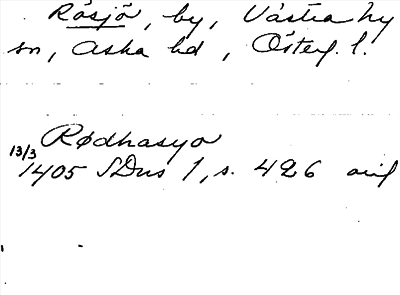 Råsjö, by, Västra Ny
sn, Aska hd, Österg. l.
Rødhasyo
13/3
1405 SDns 1, s. 426 avs